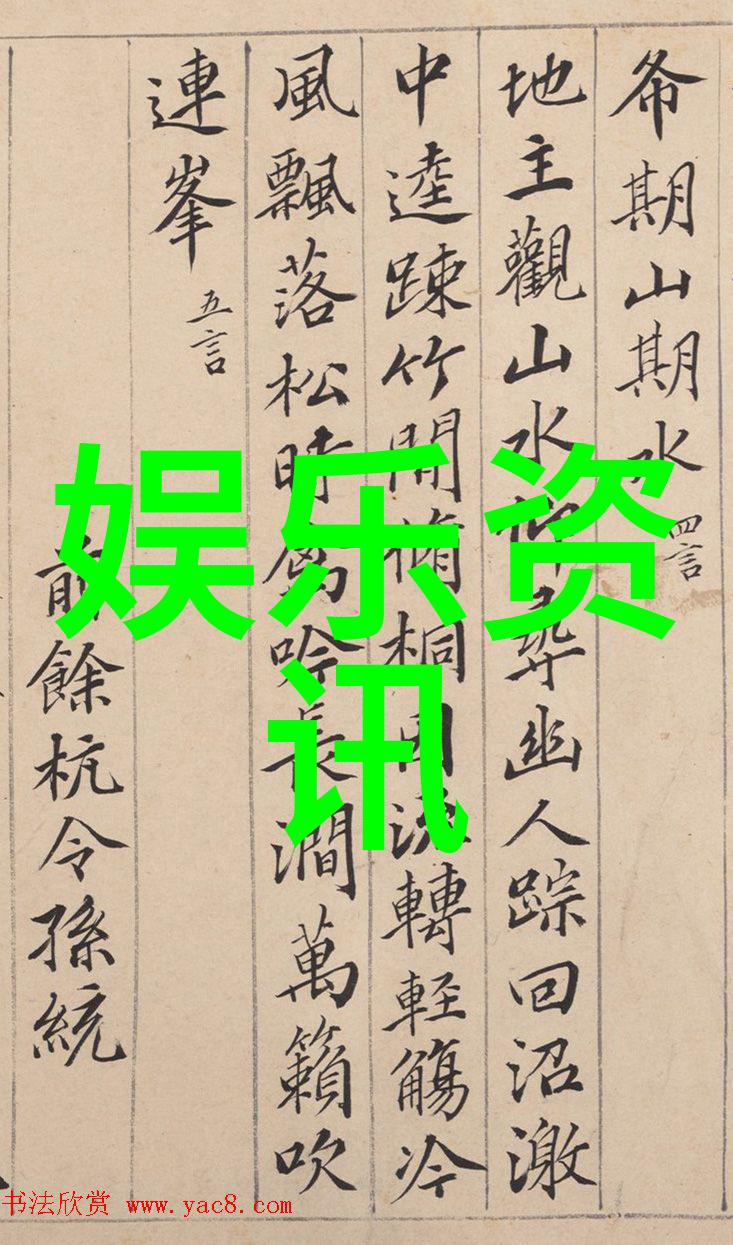 希期山期水 四言
地主觀山水仰尋幽人踪回沼激
中逵踈竹間脩桐因流轉輕觴冷
風飄落松時禽吟長澗萬籟吹
連峯 五言
前餘杭令孫統
娱乐资
讯
书法欣赏 www.yac8.com